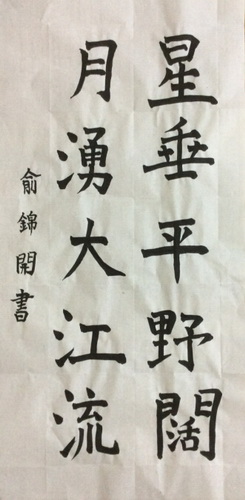 星垂平野闊
月湧大江流
俞錦開書